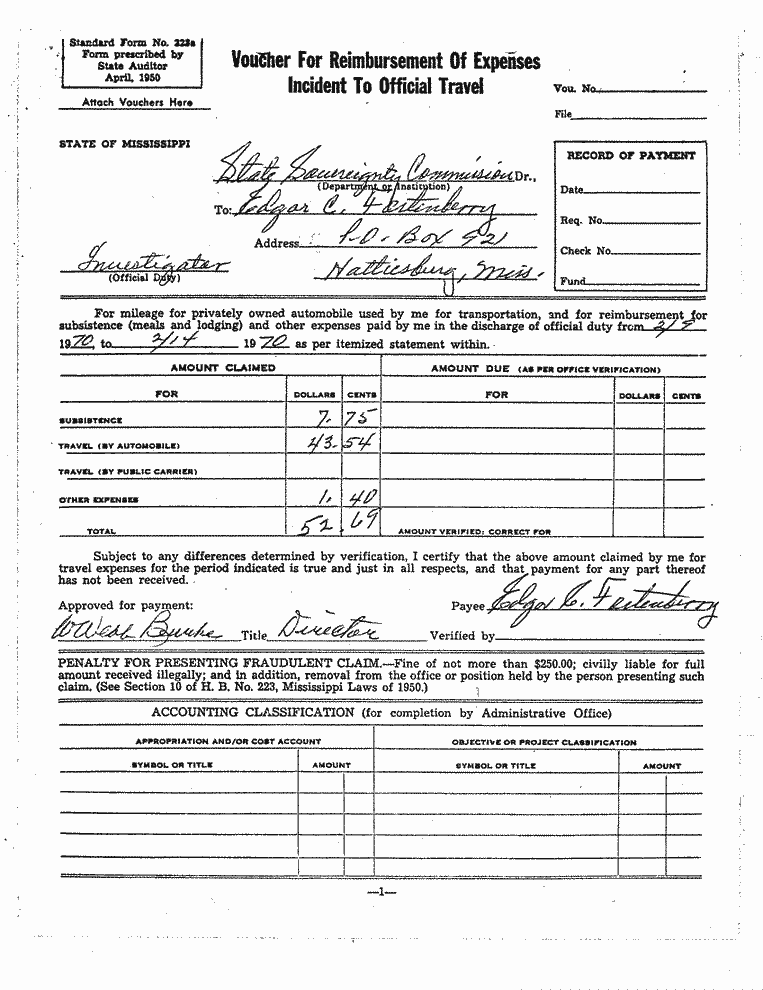 Standard Form No. 223a
Form prescribed by
State Auditor
April, 1950
Attach Vouchers Here
Voucher For Reimbursement Of Expenses
Incident To Official Travel
Vou. No.
File
STATE OF MISSISSIPPI
RECORD OF PAYMENT
Date
Req. No.
Check No.
Fund
State Sovereignty Commission Dr.,
(Department or Institution)
To: Edgar C. Fortenberry
Address P.O. Box 921
Investigator Hattiesburg, Miss.
(Official Duty)
For mileage for privately owned automobile used by me for transportation, and for reimbursement for
subsistence (meals and lodging) and other expenses paid by me in the discharge of official duty from
1970, to 2/14 1970 as per itemized statement within.
AMOUNT CLAIMED AMOUNT DUE (AS PER OFFICE VERIFICATION)
FOR DOLLARS CENTS FOR DOLLARS CENTS
SUBSISTENCE 7. 75
TRAVEL (BY AUTOMOBILE) 43. 54
TRAVEL (BY PUBLIC CARRIER)
OTHER EXPENSES 1. 40
TOTAL 52. 69 AMOUNT VERIFIED: CORRECT FOR
Subject to any differences determined by verification, I certify that the above amount claimed by me for
travel expenses for the period indicated is true and just in all respects, and that payment for any part thereof
has not been received.
Approved for payment: Payee Edgar C. Fortenberry
W Webb Burke Title Director Verified by
PENALTY FOR PRESENTING FRAUDULENT CLAIM.—Fine of not more than $250.00; civilly liable for full
amount received illegally; and in addition, removal from the office or position held by the person presenting such
claim. (See Section 10 of H. B. No. 223, Mississippi Laws of 1950.)
ACCOUNTING CLASSIFICATION (for completion by Administrative Office)
APPROPRIATION AND/OR COST ACCOUNT OBJECTIVE OR PROJECT CLASSIFICATION
SYMBOL OR TITLE AMOUNT SYMBOL OR TITLE AMOUNT
—1—